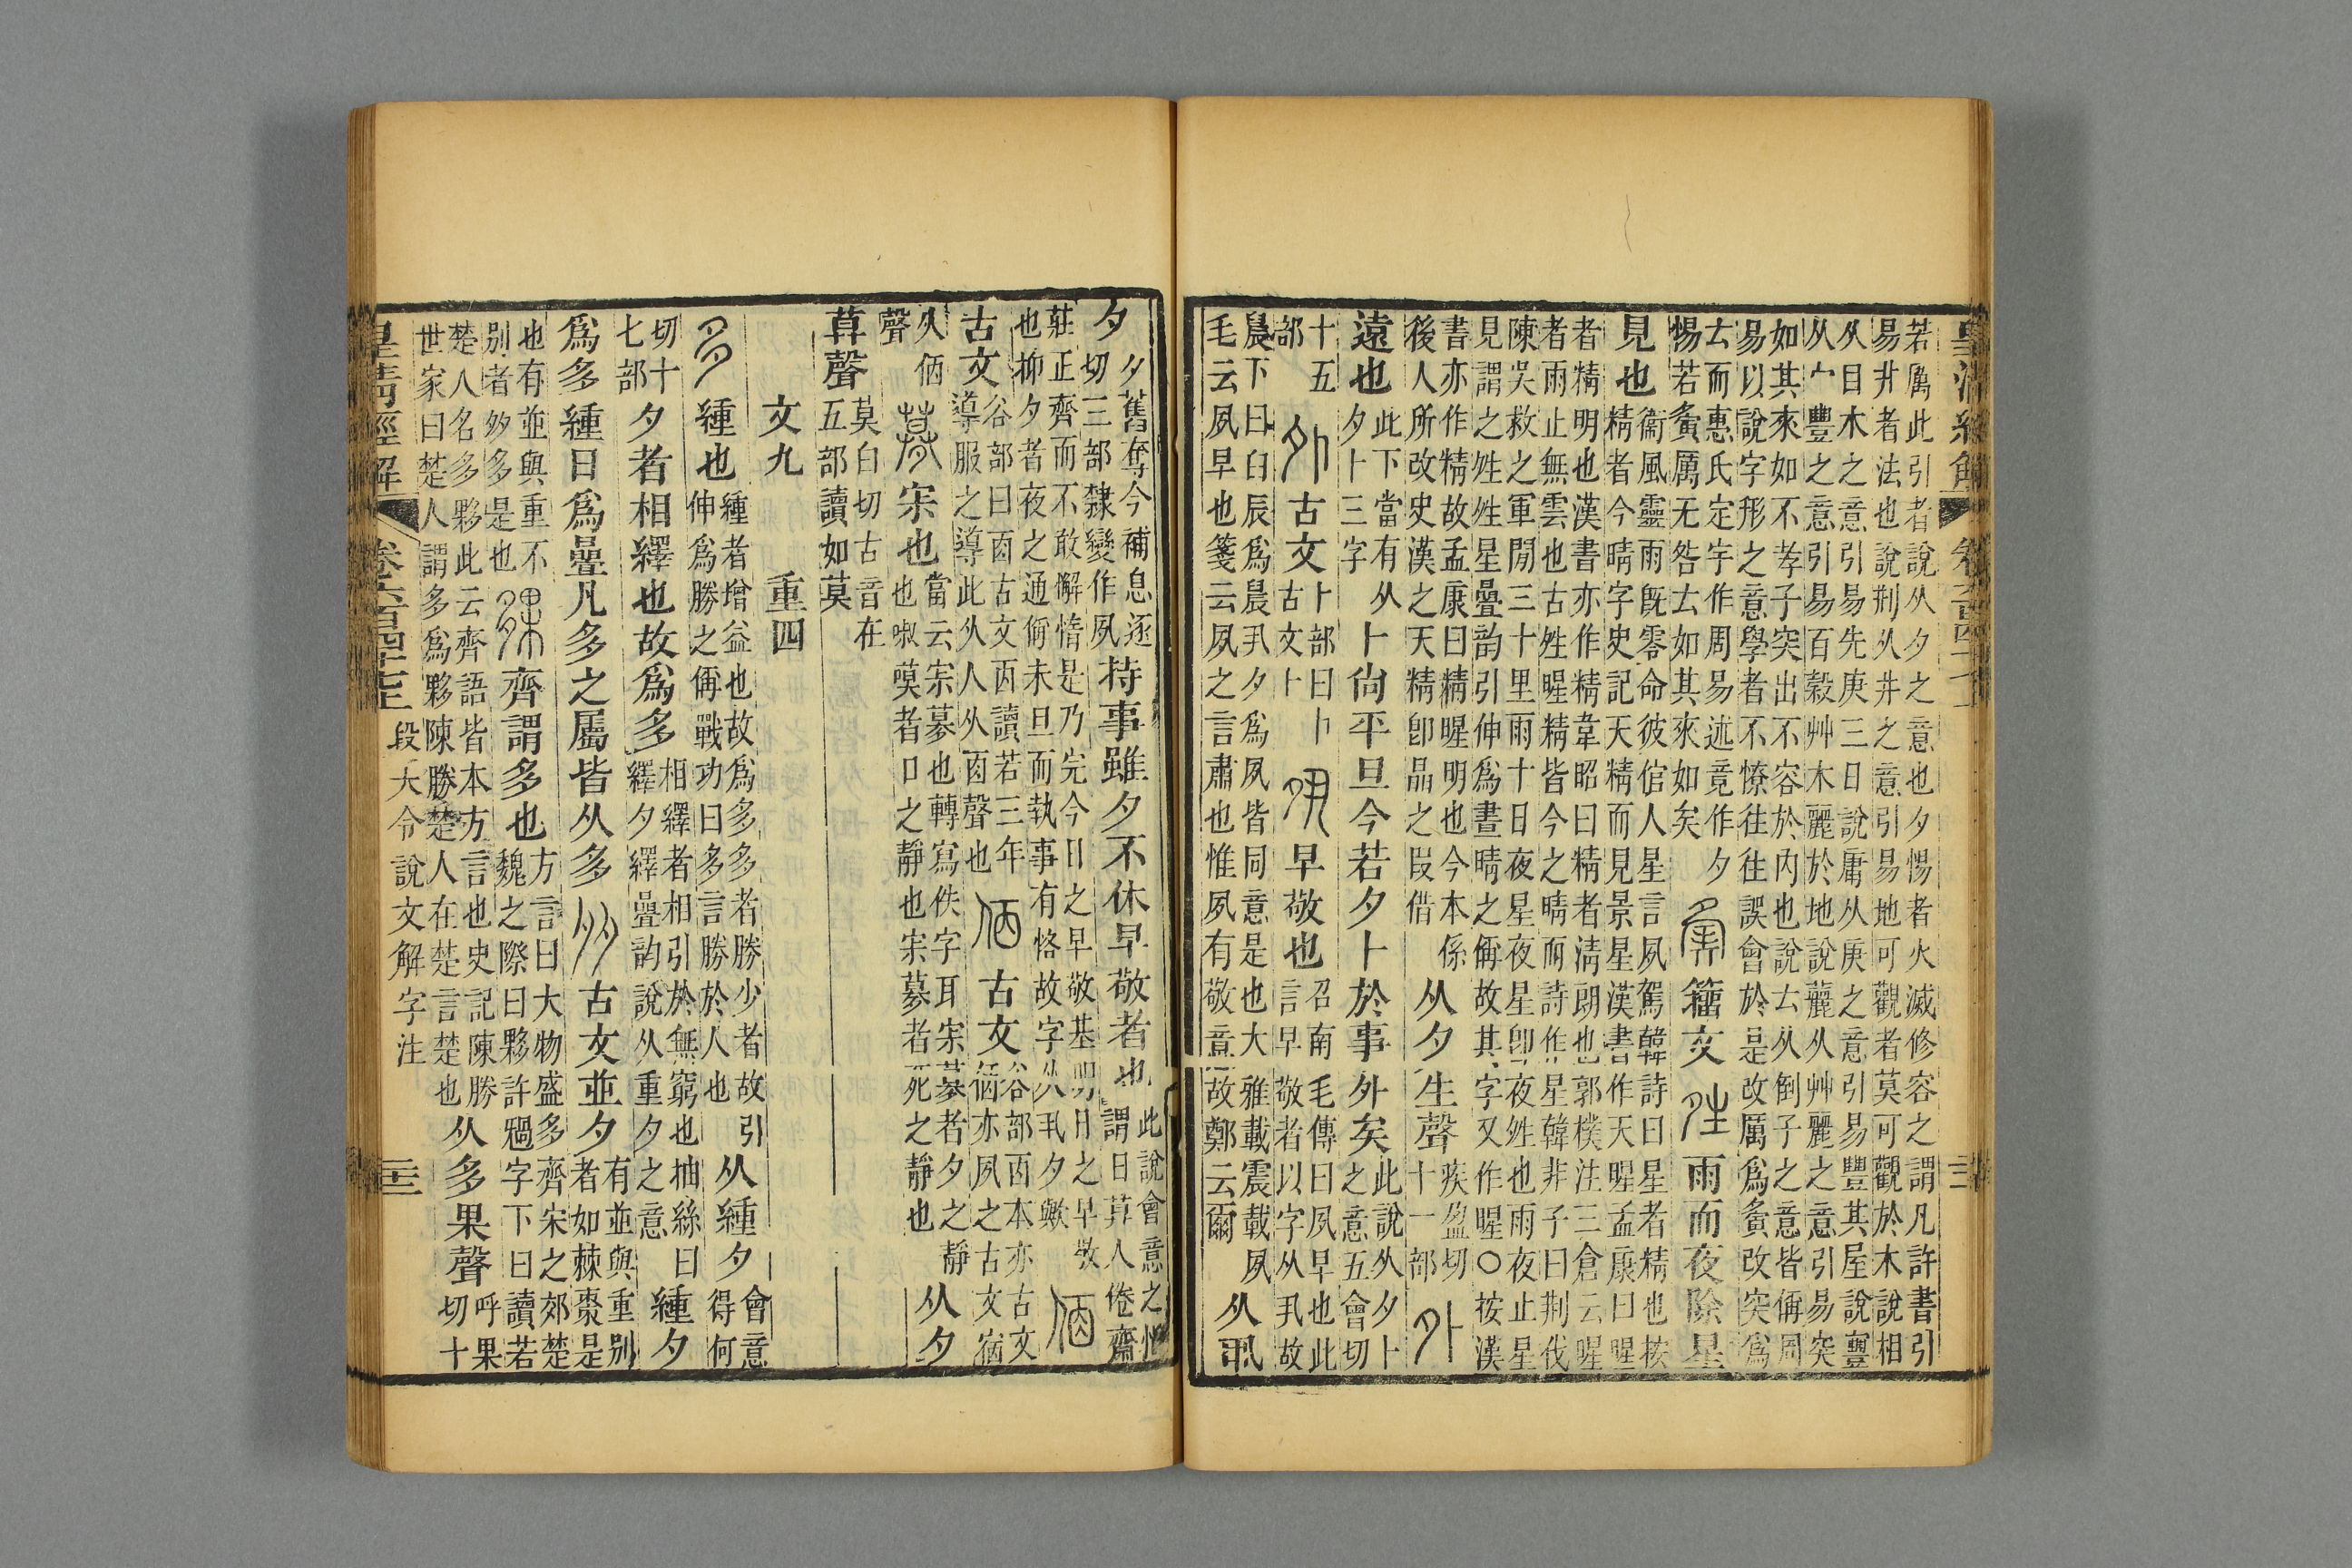 皇清經解 卷六百四十七 三
若厲此引者說从夕之意也夕惕者火滅修容之謂凡許書引
易井者法也說荆从井之意引易地可觀者莫可觀於木說相
从目木之意引易先庚三日說庸从庚之意引易豐其屋說豐
从宀豐之意引易百穀艸木麗於地說麗从艸麗之意引易突
如其來如不孝子突出不容於內也說𠫓从倒子之意皆偁周
易以說字形之意學者不憭往往誤會於是改厲爲夤改突爲
𠫓而惠氏定宇作周易述竟作夕
惕若夤厲无咎𠫓如其來如矣
籒文
雨而夜除星
見也
衞風靈雨旣零命彼倌人星言夙駕韓詩曰星者精也按
精者今晴字史記天精而見景星漢書作天暒孟康曰暒
者精明也漢書亦作精韋昭曰精者清朗也郭樸注三倉云暒
者雨止無雲也古姓暒精皆今之晴而詩作星韓非子曰荆伐
陳吳救之軍閒三十里雨十日夜星夜星卽夜姓也雨夜止星
見謂之姓姓星疊韵引伸爲晝晴之偁故其字又作暒○按漢
書亦作精故孟康曰精暒明也今本係
後人所改史漢之天精卽晶之叚借
从夕生聲
疾盈切
十一部
外
遠也
此下當有从
夕卜三字
卜尙平旦今若夕卜於事外矣
此說从夕卜
之意五會切
十五
部
古文
卜部曰卜
古文卜
早敬也
召南毛傳曰夙早也此
言早敬者以字从丮故
晨下曰臼辰爲晨丮夕爲夙皆同意是也大雅載震載夙
毛云夙早也箋云夙之言肅也惟夙有敬意故鄭云爾
从丮
夕
夕舊奪今補息逐
切三部隸變作夙
持事雖夕不休早敬者也
此說會意之恉
謂日萛人倦齋
莊正齊而不敢懈惰是乃完今日之早敬基明日之早敬
也抑夕者夜之通偁未旦而執事有恪故字从丮夕歟
古文
谷部曰㐁古文㐁讀若三年
導服之導此从人从㐁聲也
古文
谷部㐁本亦古文
㑉亦夙之古文宿
从㑉
宋也
當云宋募也轉寫佚字耳宋募者夕之靜
也嗼者口之靜也宋募者死之靜也
从夕
莫聲
莫白切古音在
五部讀如莫
文九 重四
多
緟也
緟者增益也故爲多多者勝少者故引
伸爲勝之偁戰功曰多言勝於人也
从緟夕
會意
得何
切十
七部
夕者相繹也故爲多
相繹者相引於無窮也抽絲曰
繹夕繹疊韵說从重夕之意
緟夕
爲多緟日爲疊凡多之屬皆从多
古文並夕
有並與重别
者如棘棗是
也有並與重不
别者多是也
齊謂多也
方言曰大物盛多齊宋之郊楚
魏之際曰夥許𩰫字下曰讀若
楚人名多夥此云齊語皆本方言也史記陳勝
世家曰楚人謂多爲夥陳勝楚人在楚言楚也
从多果聲
呼果
切十
皇清經解 卷六百四十七 段大令說文解字注 三